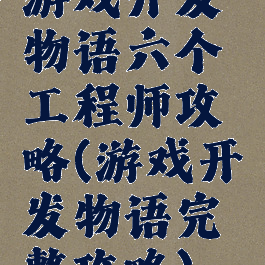 游戏开发
物语六个
工程师攻
略(游戏开
发物语完
整攻略)